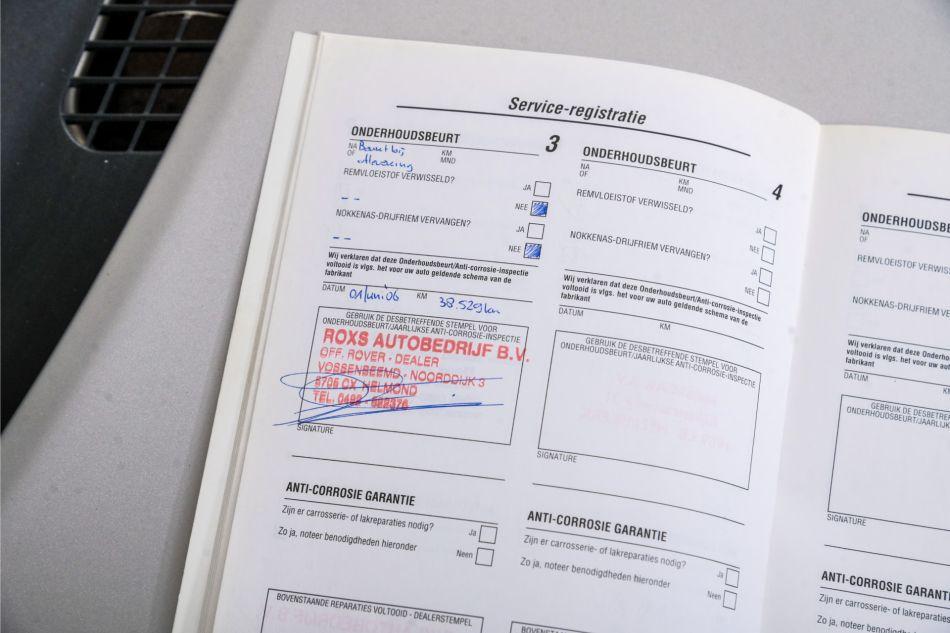 Service-registratie
ONDERHOUDSBEURT 3
NA Beurt bij KM
OF aflevering MND
REMVLOEISTOF VERWISSELD?
JA
-- NEE
NOKKENAS-DRIJFRIEM VERVANGEN?
JA
-- NEE
Wij verklaren dat deze Onderhoudsbeurt/Anti-corrosie-inspectie
voltooid is vlgs. het voor uw auto geldende schema van de
fabrikant
DATUM 01/juni '06 KM 38.529km
GEBRUIK DE DESBETREFFENDE STEMPEL VOOR
ONDERHOUDSBEURT/JAARLIJKSE ANTI-CORROSIE-INSPECTIE
ROXS AUTOBEDRIJF B.V.
OFF. ROVER - DEALER
VOSSENBEEMD - NOORDDIJK 3
5705 CX HELMOND
TEL. 0492 -
SIGNATURE
ANTI-CORROSIE GARANTIE
Zijn er carrosserie- of lakreparaties nodig?
Ja
Zo ja, noteer benodigdheden hieronder
Neen
BOVENSTAANDE REPARATIES VOLTOOID - DEALERSTEMPEL
ONDERHOUDSBEURT 4
NA KM
OF MND
REMVLOEISTOF VERWISSELD?
JA
NEE
NOKKENAS-DRIJFRIEM VERVANGEN?
JA
NEE
Wij verklaren dat deze Onderhoudsbeurt/Anti-corrosie-inspectie
voltooid is vlgs. het voor uw auto geldende schema van de
fabrikant
DATUM KM
GEBRUIK DE DESBETREFFENDE STEMPEL VOOR
ONDERHOUDSBEURT/JAARLIJKSE ANTI-CORROSIE-INSPECTIE
SIGNATURE
ANTI-CORROSIE GARANTIE
Zijn er carrosserie- of lakreparaties nodig?
Ja
Zo ja, noteer benodigdheden hieronder
Neen
BOVENSTAANDE REPARATIES
ONDERHOUDSBE
NA
OF
REMVLOEISTOF VERWISS
NOKKENAS-DRIJFRIEM
Wij verklaren dat deze Onderh
voltooid is vlgs. het voor uw au
fabrikant
DATUM
GEBRUIK DE DESBE
ONDERHOUDSBEURT/JAARLIJK
SIGNATURE
ANTI-CORROSIE GARA
Zijn er carrosserie- of lakre
Zo ja, noteer benodigdhed